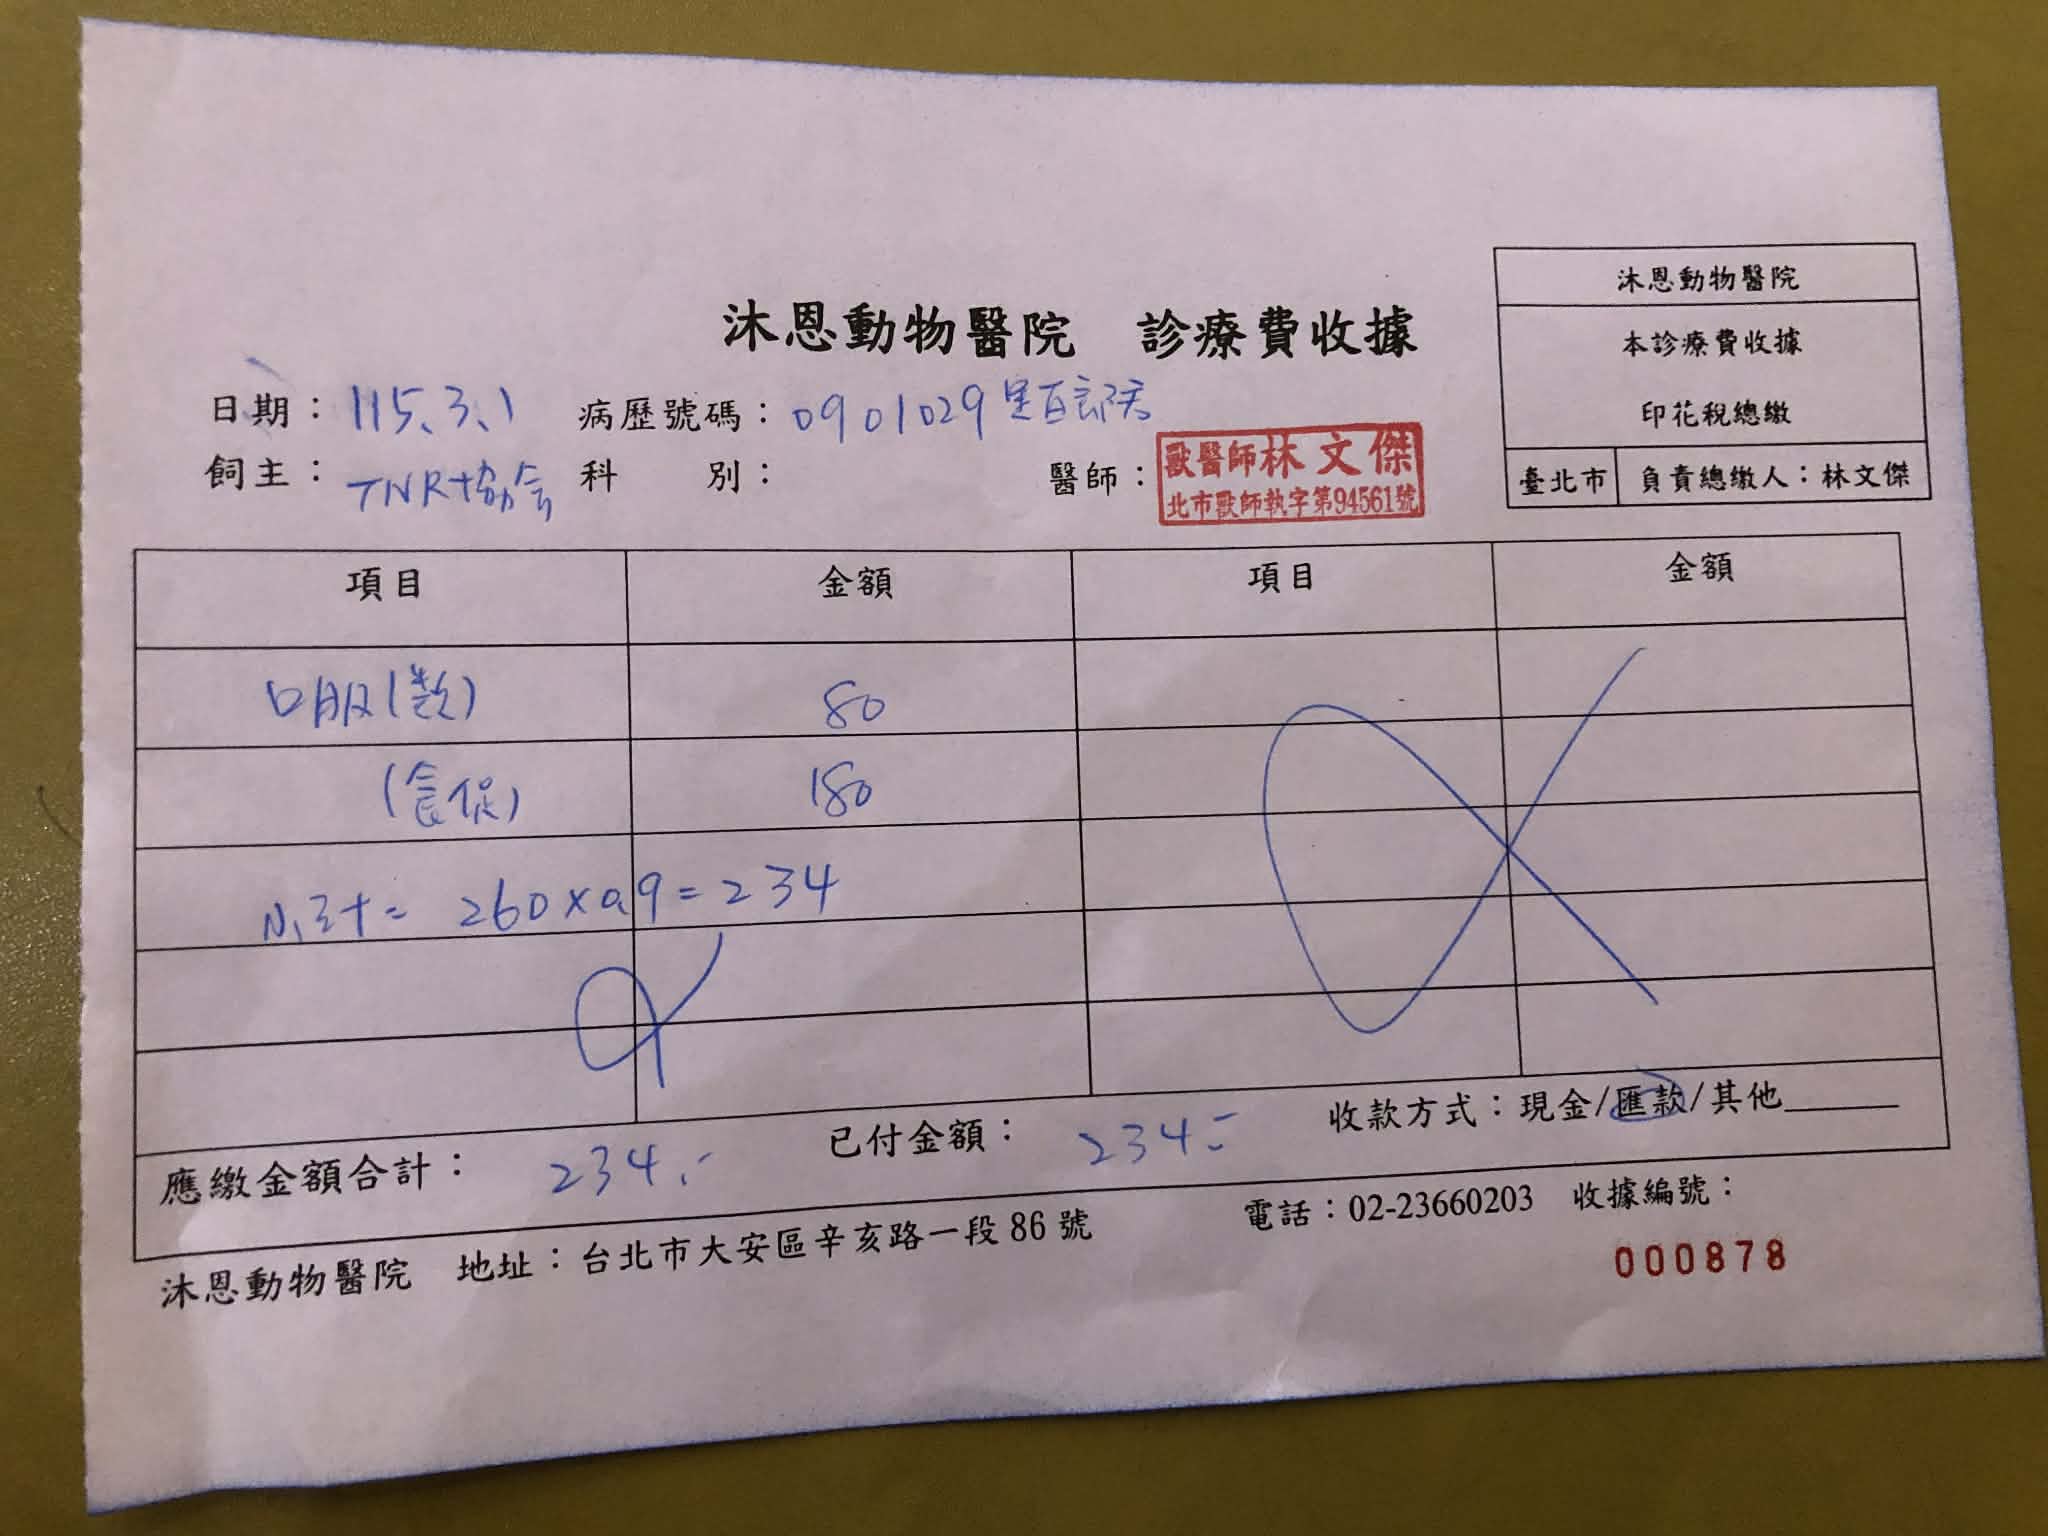 沐恩動物醫院
本診療費收據
印花稅總繳
臺北市 負責總繳人：林文傑
沐恩動物醫院 診療費收據
日期：115.3.1 病歷號碼：0901029
飼主：TNR協會 科別： 醫師：
獸醫師林文傑
北市獸師執字第94561號
項目 金額 項目 金額
口服( ) 80
( ) 180
小計= 260×0.9=234
應繳金額合計：234.- 已付金額：234.- 收款方式：現金/匯款/其他______
沐恩動物醫院 地址：台北市大安區辛亥路一段86號 電話：02-23660203 收據編號：
000878